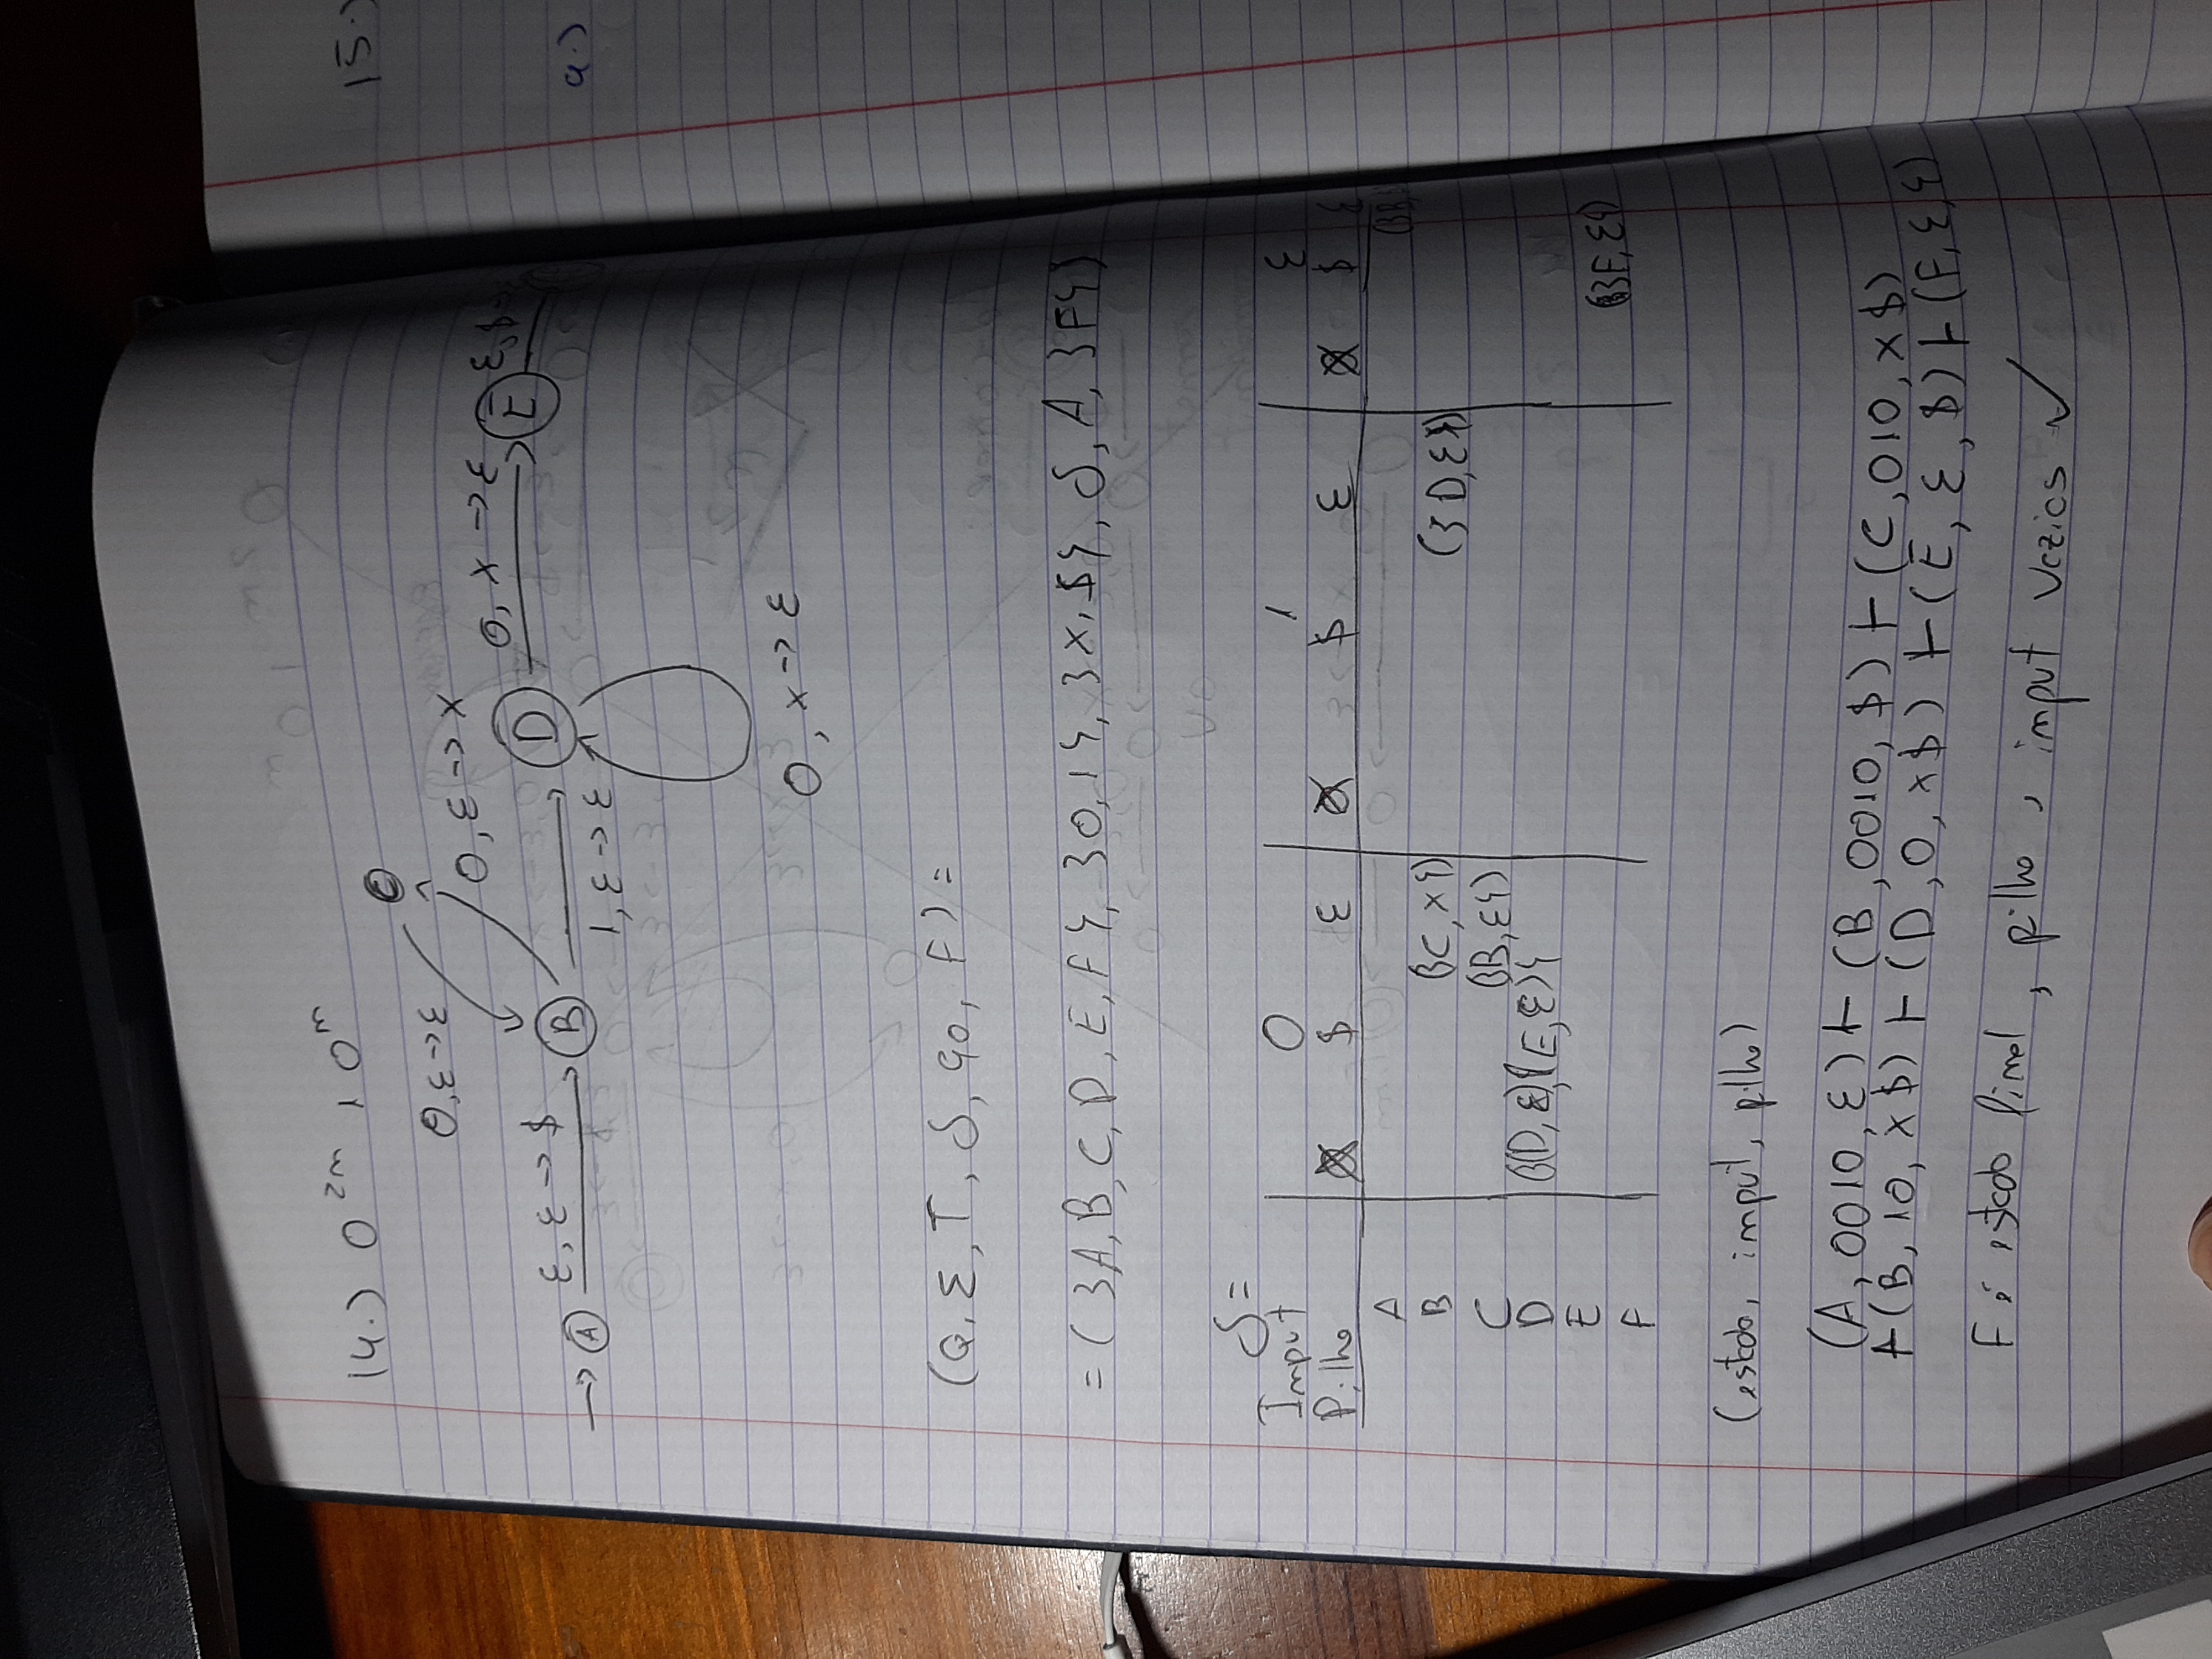 14.) 0^2n 1 0^n
C
0,ε->ε
0,ε->x
-> A ε,ε->$ B 1,ε->ε D 0,x->ε E ε,$->
0,x->ε
(Q,Σ,T,δ,q0,F)=
=({A,B,C,D,E,F},{0,1},{x,$},δ,A,{F})
δ=
Input 0 1 ε
Pilha x $ ε x $ ε x $ ε
A ({B,
B ({C,x}) ({D,ε})
C ({B,ε})
D {(D,ε),(E,ε)}
E ({F,ε})
F
(estado, input, pilha)
(A,0010,ε)⊢(B,0010,$)⊢(C,010,x$)
⊢(B,10,x$)⊢(D,0,x$)⊢(E,ε,$)⊢(F,ε,ε)
F é estado final, pilha, input vazios ✓
15.)
a.)